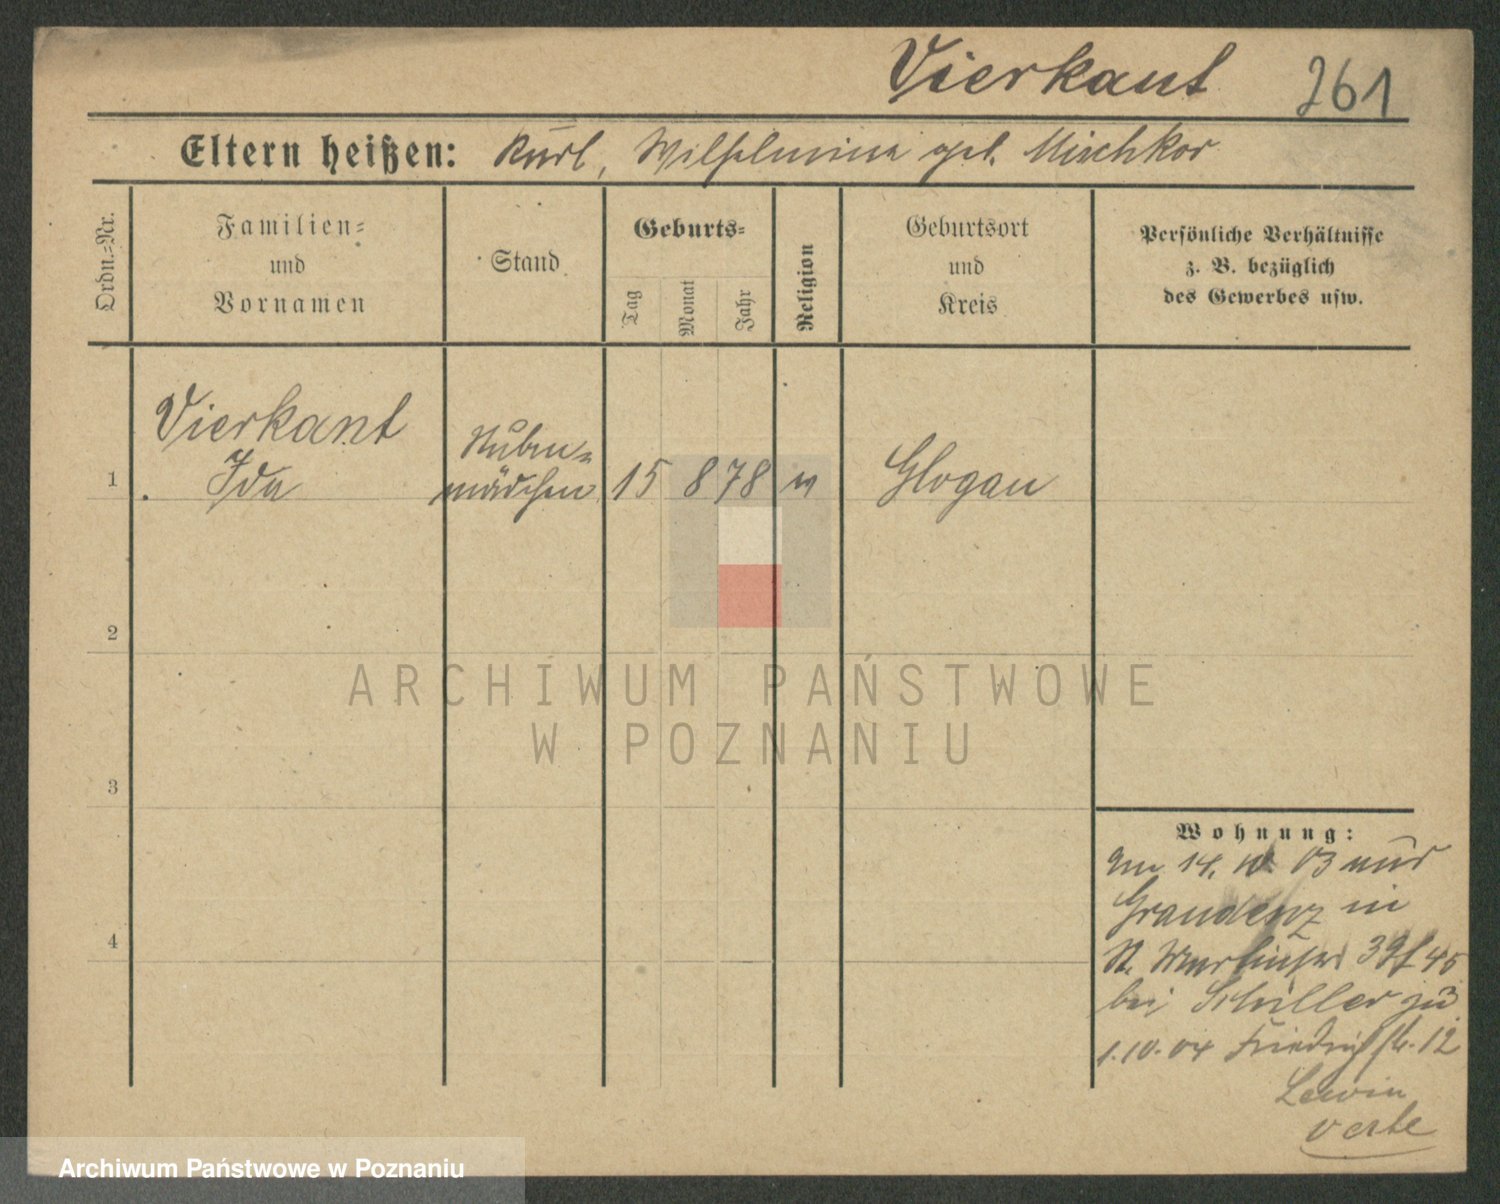 Vierkant 261
Eltern heißen: Karl, Wilhelmina geb. Mischkor
Ordn.-Nr.
Familien-
und
Vornamen
Stand
Geburts-
Tag
Monat
Jahr
Religion
Geburtsort
und
Kreis
Persönliche Verhältnisse
z. B. bezüglich
des Gewerbes usw.
1
Vierkant
Ida
Stuben-
mädchen
15 8 78
Glogau
2
3
4
Wohnung:
Am 14. 10. 03 aus
Graudenz in
St. 39/45
bei Schiller zu
1.10.04 Friedrichstr. 12
Lewin
verte
ARCHIWUM PAŃSTWOWE
W POZNANIU
Archiwum Państwowe w Poznaniu